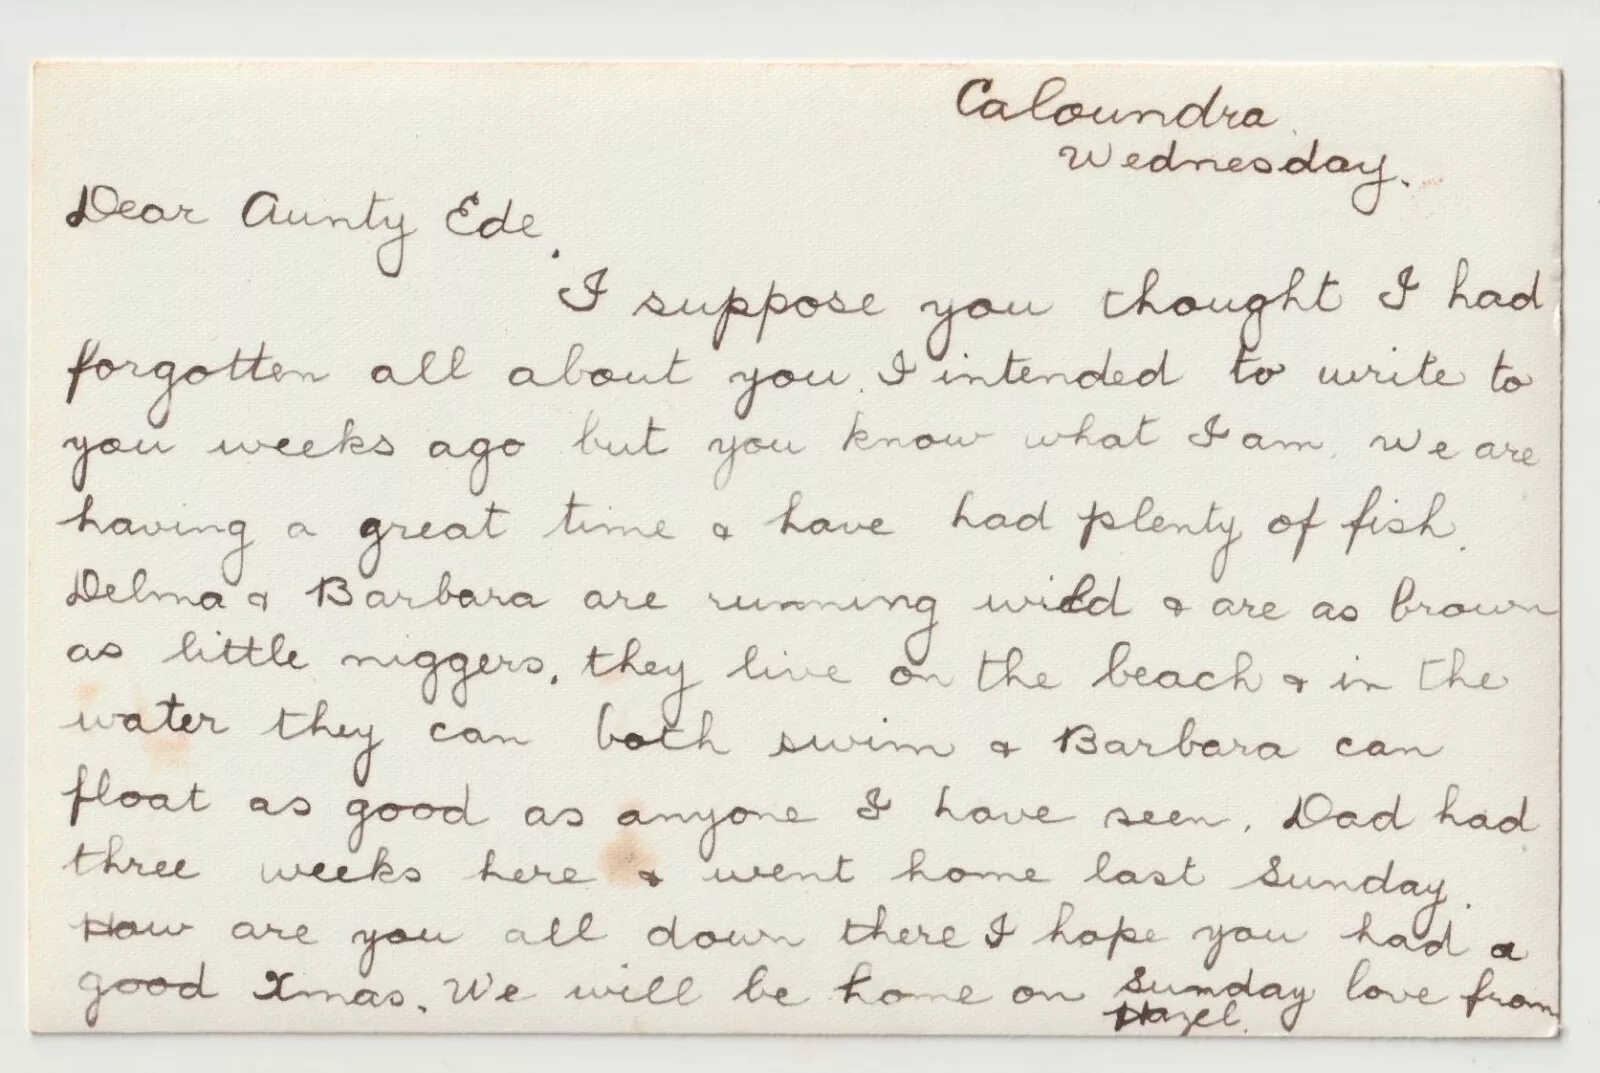 Caloundra.
Wednesday.
Dear Aunty Ede.
I suppose you thought I had
forgotten all about you. I intended to write to
you weeks ago but you know what I am. We are
having a great time & have had plenty of fish.
Delma & Barbara are running wild & are as brown
as little niggers, they live on the beach & in the
water they can both swim & Barbara can
float as good as anyone I have seen. Dad had
three weeks here & went home last Sunday.
How are you all down there I hope you had a
good Xmas. We will be home on Sunday love from
Hazel.